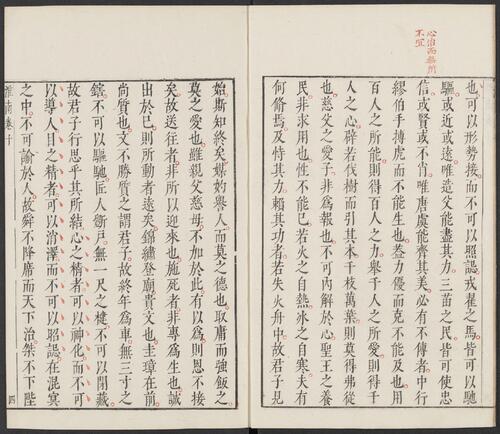 心治而無所
不宜
也可以形勢接而不可以照誋戎翟之馬皆可以馳
驅或近或遠唯造父能盡其力三苗之民皆可使忠
信或賢或不肖唯唐虞能齊其美必有不傳者中行
繆伯手搏虎而不能生也葢力優而克不能及也用
百人之所能則得百人之力舉千人之所愛則得千
人之心辟若伐樹而引其本千枝萬葉則莫得弗從
也慈父之愛子非為報也不可內解於心聖王之養
民非求用也性不能已若火之自熱冰之自寒夫有
何脩焉及恃其力賴其功者若失火舟中故君子見
始斯知終矣媒妁譽人而莫之德也取庸而強飯之
莫之愛也雖親父慈母不加於此有以為則恩不接
矣故送往者非所以迎來也施死者非專為生也誠
出於已則所動者遠矣錦繡登廟貴文也圭璋在前
尚質也文不勝質之謂君子故終年為車無三寸之
鎋不可以驅馳匠人斵戶無一尺之楗不可以閉藏
故君子行思乎其所結心之精者可以神化而不可
以導人目之精者可以消澤而不可以昭誋在混冥
之中不可諭於人故舜不降席而天下治桀不下陛
淮南卷十 四